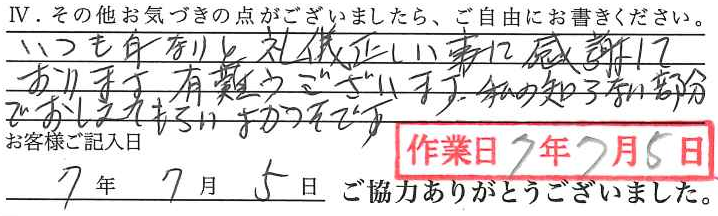 Ⅳ．その他お気づきの点がございましたら、ご自由にお書きください。
いつも身なりと礼儀正しい事に感謝して
おります 有難うございます。私の知らない部分
でおしえてもらい よかったです
お客様ご記入日
作業日 7年7月5日
7年 7月 5日 ご協力ありがとうございました。